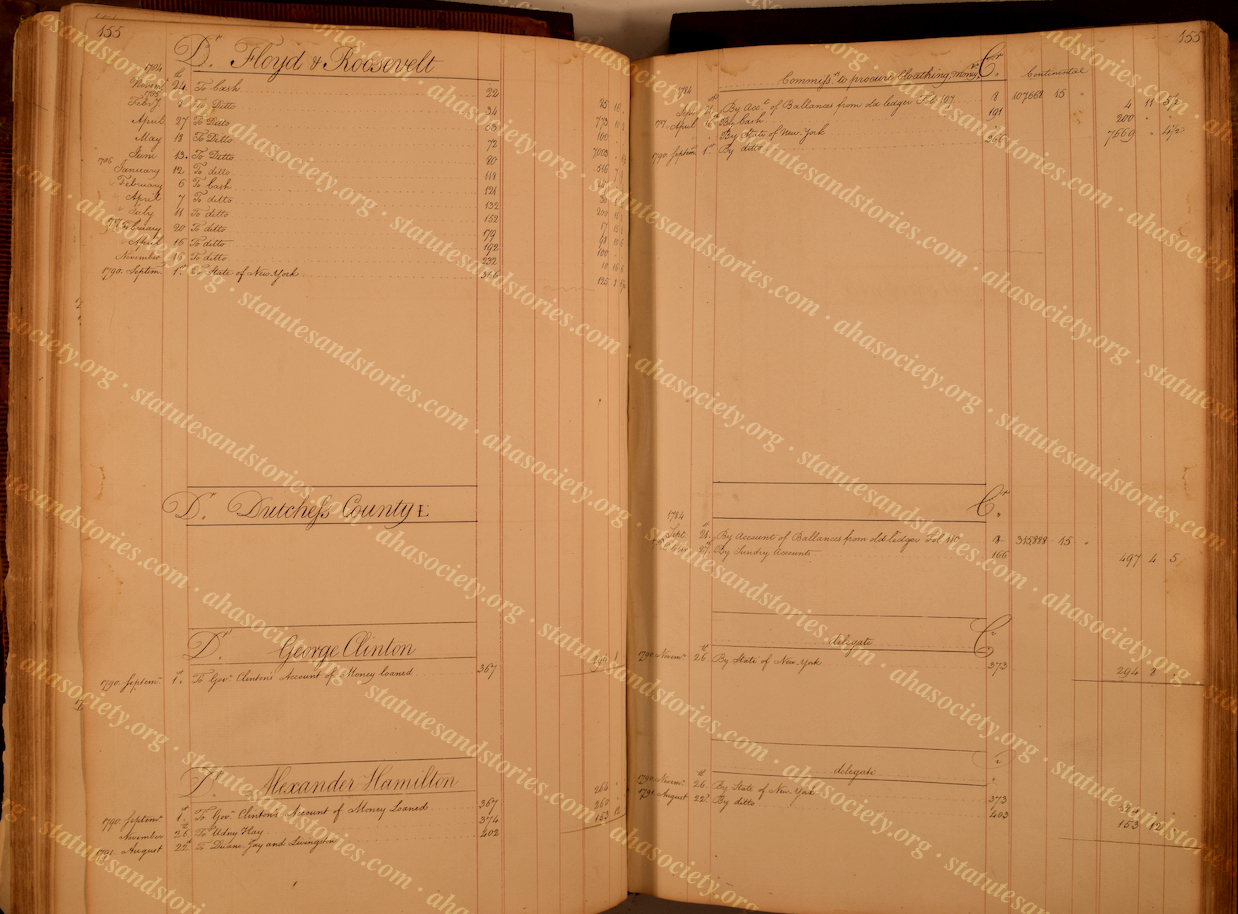 155
Dr. Floyd & Roosevelt
1784
Novemr. 24 To Cash 22
1785
Feby. To Ditto 34
April 27 To Ditto
May 18 To Ditto 72
June 13. To Ditto 80
1786
January 12. To ditto 118
February 6 To Cash 121
April 7 To ditto 132
July 11 To ditto 152
February 20 To ditto 179
April 16 To ditto 192
November 16 To ditto 232
1790. Septem. 1st. To State of New York
Dr. Dutchess County
Dr. George Clinton
1790. Septemr. 1st. To Govr. Clinton's Account of Money loaned 367
Dr. Alexander Hamilton
1790. Septemr. 1st. To Govr. Clinton's Account of Money Loaned 367 260
November 26 To Udny Hay 374
1791. August 22d To Duane Jay and Livingston 402 153 12
155
Commissrs. to procure Cloathing, Money Cr.
Continental
1784
Sepr. 21 By Acct. of Ballances from old ledger Fol 107 8 107668 45 4 11
April By Cash 191 200
By State of New York 7669
1790 Septem 1st By ditto
Cr.
1784
Sept. 21. By Account of Ballances from old ledger Fol 110 8 315888 45
27. By Sundry Accounts 166 497 4 5
delegate Cr.
1790. Novemr. 26. By State of New York 373 294 8
delegate Cr.
1790. Novemr. 26. By State of New York 373
1791. August 22d By ditto 403 153 12
ahasociety.org · statutesandstories.com